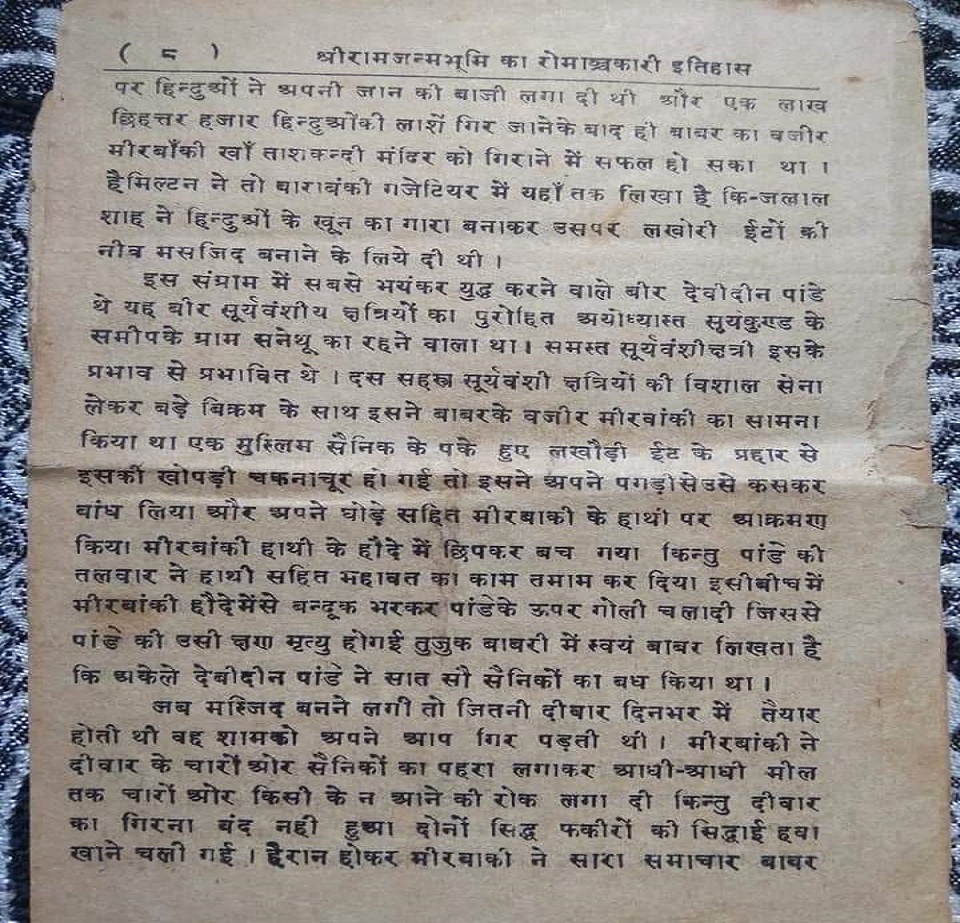 ( ८ ) श्रीरामजन्मभूमि का रोमाञ्चकारी इतिहास
पर हिन्दुओं ने अपनी जान की बाजी लगा दी थी और एक लाख
छिहत्तर हजार हिन्दुओंकी लाशें गिर जानेके बाद ही बाबर का वजीर
मीरबाँकी खाँ ताशकन्दी मंदिर को गिराने में सफल हो सका था ।
हैमिल्टन ने तो बाराबंकी गजेटियर में यहाँ तक लिखा है कि-जलाल
शाह ने हिन्दुओं के खून का गारा बनाकर उसपर लखोरी ईटों की
नीव मसजिद बनाने के लिये दी थी ।
इस संग्राम में सबसे भयंकर युद्ध करने वाले बीर देवीदीन पांडे
थे यह बीर सूर्यवंशीय क्षत्रियों का पुरोहित अयोध्यास्त सूर्यकुण्ड के
समीपके ग्राम सनेथू का रहने वाला था। समस्त सूर्यवंशीक्षत्री इसके
प्रभाव से प्रभावित थे । दस सहस्त्र सूर्यवंशी क्षत्रियों की विशाल सेना
लेकर बड़े बिक्रम के साथ इसने बाबरके वजीर मीरबांकी का सामना
किया था एक मुस्लिम सैनिक के पके हुए लखौड़ी ईट के प्रहार से
इसकी खोपड़ी चकनाचूर हो गई तो इसने अपने पगड़ीसेउसे कसकर
बांध लिया और अपने घोड़े सहित मीरबाकी के हाथी पर आक्रमण
किया मीरबांकी हाथी के हौदे में छिपकर बच गया किन्तु पांडे की
तलवार ने हाथी सहित महावत का काम तमाम कर दिया इसीबीचमें
मीरबांकी हौदेमेंसे बन्दूक भरकर पांडेके ऊपर गोली चलादी जिससे
पांडे की उसी क्षण मृत्यु होगई तुजुक बाबरी में स्वयं बाबर लिखता है
कि अकेले देबीदीन पांडे ने सात सौ सैनिकों का बध किया था ।
जब मस्जिद बनने लगी तो जितनी दीबार दिनभर में तैयार
होती थी वह शामको अपने आप गिर पड़ती थी । मीरबांकी ने
दीवार के चारों ओर सैनिकों का पहरा लगाकर आधी-आधी मील
तक चारों ओर किसी के न आने की रोक लगा दी किन्तु दीवार
का गिरना बंद नही हुआ दोनों सिद्ध फकीरों की सिद्धाई हवा
खाने चली गई । हैरान होकर मीरबाकी ने सारा समाचार बाबर